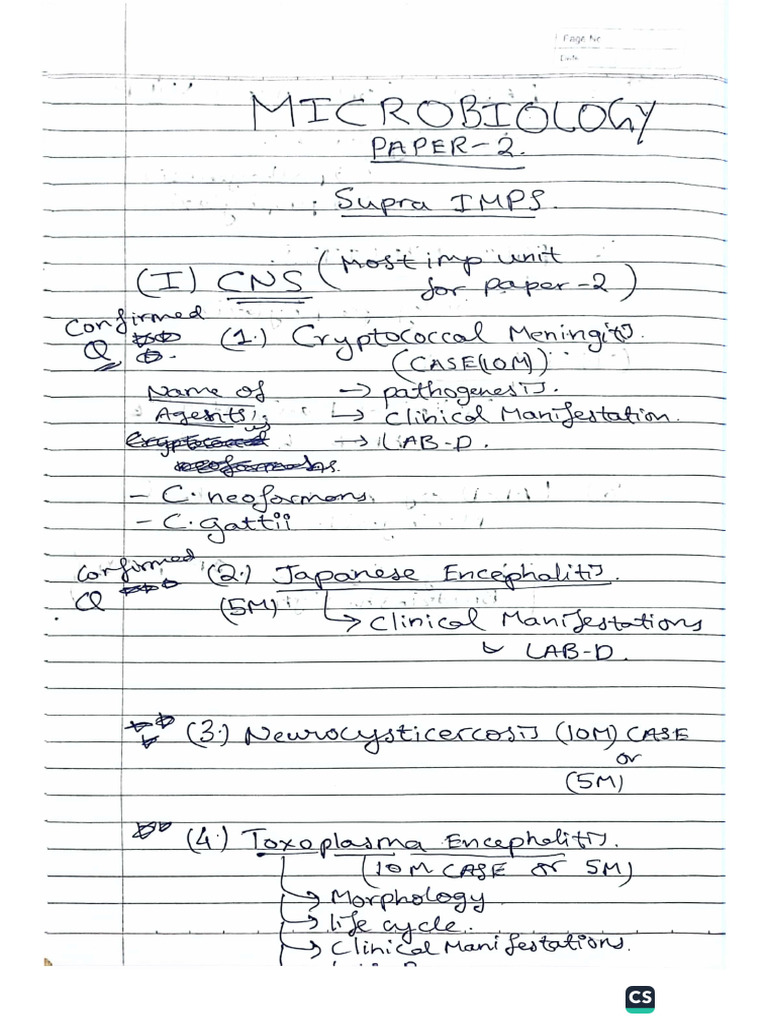 Page No
Date
MICROBIOLOGY
PAPER-2.
Supra IMPS.
(I) CNS (Most imp unit
for paper-2)
Confirmed
Q
(1.) Cryptococcal Meningitis.
(CASE(10M))
Name of
Agents:
→ pathogenesis.
↳ Clinical Manifestation.
→ LAB-D.
- C. neoformans.
- C. gattii
Confirmed
Q
(2.) Japanese Encephalitis.
(5M)
↳ Clinical Manifestations
↳ LAB-D.
(3.) Neurocysticercosis (10M) CASE
or
(5M)
(4.) Toxoplasma Encephalitis.
(10M CASE or 5M)
→ Morphology
→ life cycle.
→ Clinical Manifestations.
CS